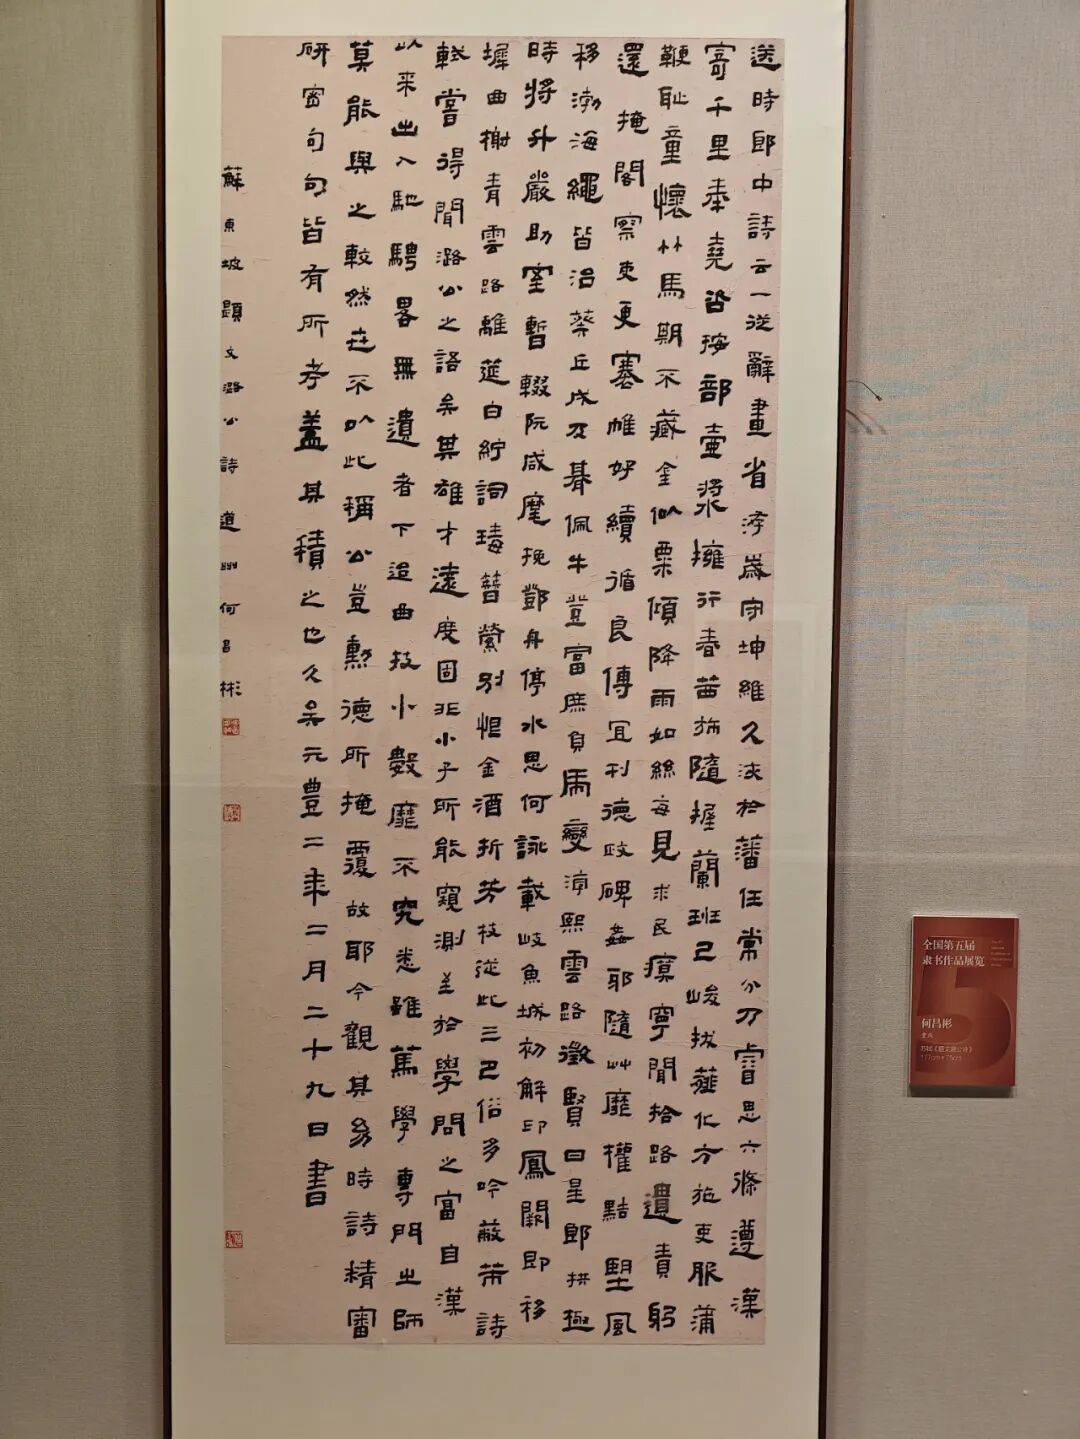 送時郎中詩云一從辭畫省洊歲守坤維久浹於藩任常分乃睿思六條遵漢
寄千里奉堯咨按部壺漿擁行春茜斾隨握蘭班已峻拔薤化方施吏服蒲
鞭恥童懷竹馬期不藏金似粟傾降雨如絲每見求民瘼寧聞拾路遺責躬
還掩閤察吏更褰帷好續循良傳宜刊德政碑姦邪隨艸靡權黠望風
移渤海繩皆治葵丘戍及朞佩牛豈富庶負虎變淳熙雲路徵賢日星郎拱極
時將升嚴助室暫輟阮咸麾挽鄧舟停水思何詠載岐魚城初解印鳳闕即移
墀曲榭青雲路離筵白紵詞瑇簪縈別恨金酒折芳枝從此三巴俗多吟蔽芾詩
軾嘗得聞潞公之語矣其雄才遠度固非小子所能窺測至於學問之富自漢
以來出入馳騁畧無遺者下迨曲技小數靡不究悉雖篤學專門之師
莫能與之較然世不以此稱公豈勳德所掩覆故耶今觀其幼時詩精審
研密句句皆有所考蓋其積之也久矣元豐二年二月二十九日書
蘇東坡題文潞公詩 道州何昌彬
全国第五届
隶书作品展览
何昌彬